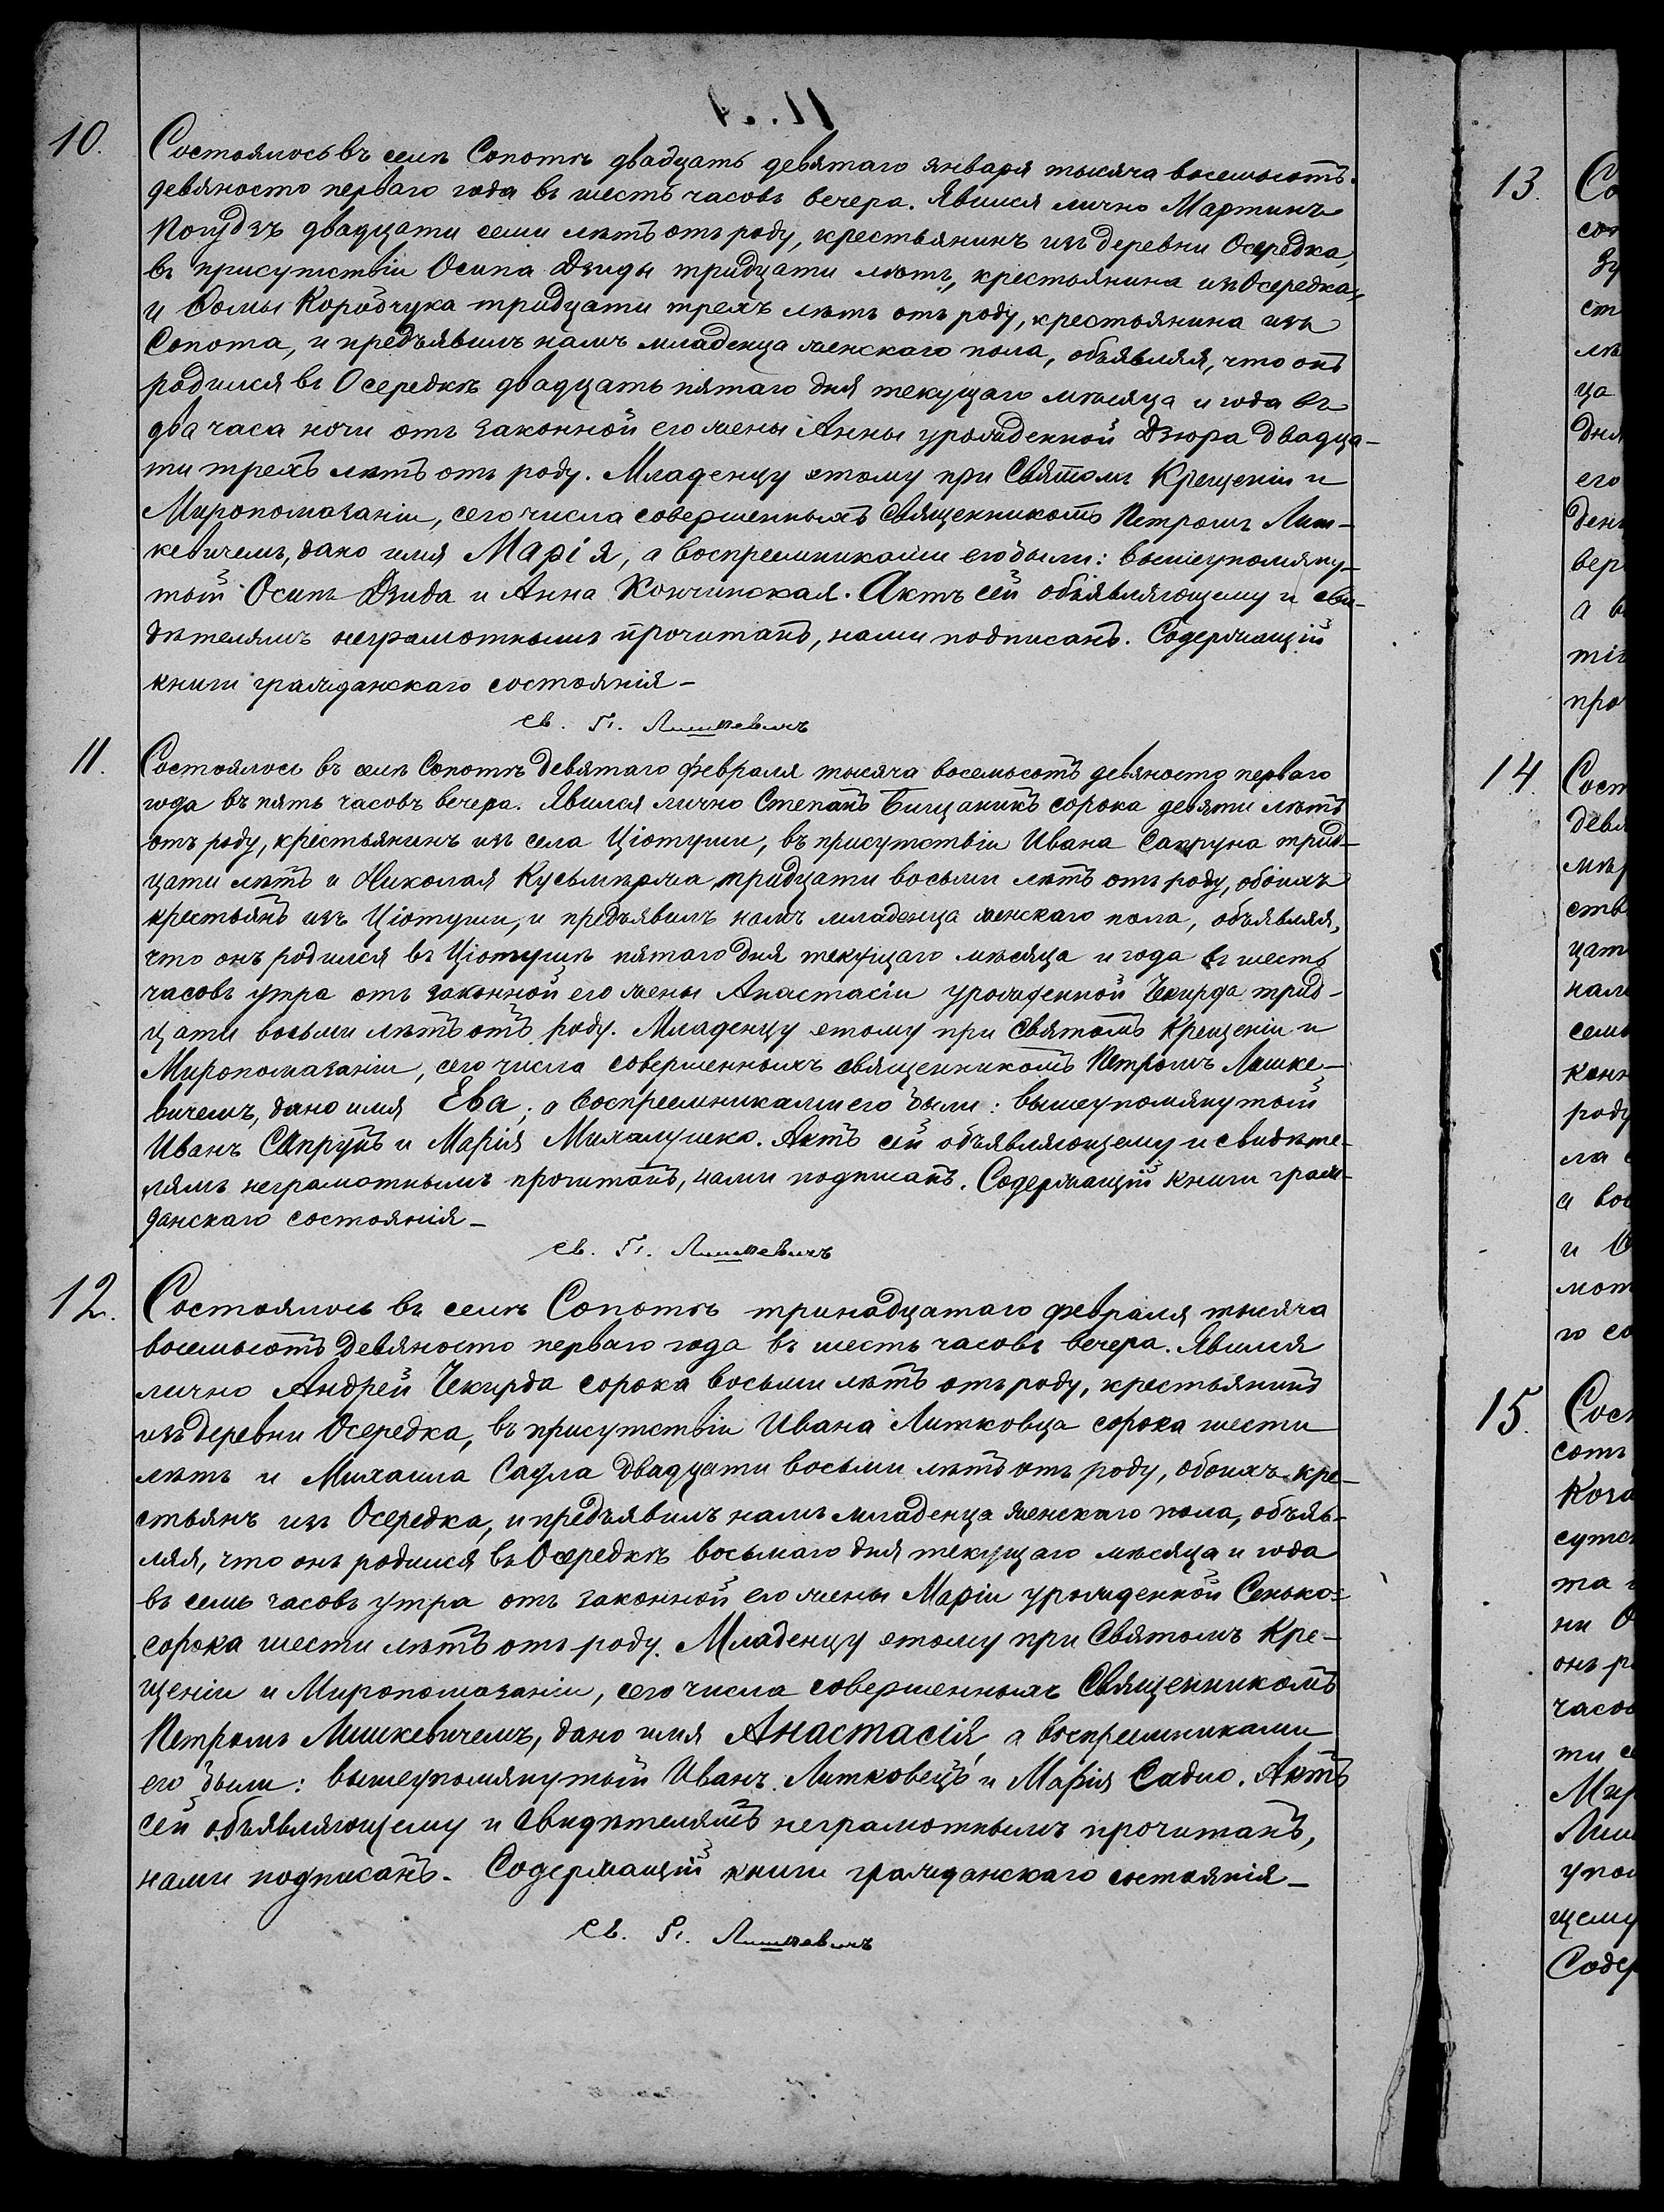 10.
Состоялось въ селѣ Сопотѣ двадцать девятаго января тысяча восемьсотъ
девяносто перваго года въ шесть часовъ вечера. Явился лично Мартинъ
двадцати семи лѣтъ отъ роду, крестьянинъ изъ деревни Осередка,
въ присутствіи Осипа Дзиды тридцати лѣтъ, крестьянина изъ Осередка
и Ѳомы Коробчука тридцати трехъ лѣтъ отъ роду, крестьянина изъ
Сопота, и предъявилъ намъ младенца женскаго пола, объявляя, что онъ
родился въ Осередкѣ двадцать пятаго дня текущаго мѣсяца и года въ
два часа ночи отъ законной его жены Анны урожденной Дзюра двадца-
ти трехъ лѣтъ отъ роду. Младенцу этому при Святомъ Крещеніи и
Миропомазаніи, сего числа совершенныхъ Священникомъ Петромъ Лиш-
кевичемъ, дано имя Марія, а воспреемниками его были: вышеупомяну-
тый Осипъ Дзида и Анна Кончинская. Актъ сей объявляющему и сви-
дѣтелямъ неграмотнымъ прочитанъ, нами подписанъ. Содержащій
книги гражданскаго состоянія–
св. П. Лишкевичъ
11.
Состоялось въ селѣ Сопотѣ девятаго февраля тысяча восемьсотъ девяносто перваго
года въ пять часовъ вечера. Явился лично Степанъ Бищаникъ сорока девяти лѣтъ
отъ роду, крестьянинъ изъ села Ціотуши, въ присутствіи Ивана Сапруна трид-
цати лѣтъ и Николая тридцати восьми лѣтъ отъ роду, обоихъ
крестьянъ изъ Ціотуши, и предъявилъ намъ младенца женскаго пола, объявляя,
что онъ родился въ Ціотушѣ пятаго дня текущаго мѣсяца и года въ шесть
часовъ утра отъ законной его жены Анастасіи урожденной Чекирда трид-
цати восьми лѣтъ отъ роду. Младенцу этому при Святомъ Крещеніи и
Миропомазаніи, сего числа совершенныхъ священникомъ Петромъ Лишке-
вичемъ, дано имя Ева; а воспреемниками его были: вышеупомянутый
Иванъ Сапрунъ и Марія Михалушко. Актъ сей объявляющему и свидѣте-
лямъ неграмотнымъ прочитанъ, нами подписанъ. Содержащій книги граж-
данскаго состоянія–
св. П. Лишкевичъ
12.
Состоялось въ селѣ Сопотѣ тринадцатаго февраля тысяча
восемьсотъ девяносто перваго года въ шесть часовъ вечера. Явился
лично Андрей Чекирда сорока восьми лѣтъ отъ роду, крестьянинъ
изъ деревни Осередка, въ присутствіи Ивана Литковца сорока шести
лѣтъ и Михаила Садла двадцати восьми лѣтъ отъ роду, обоихъ кре-
стьянъ изъ Осередка, и предъявилъ намъ младенца женскаго пола, объяв-
ляя, что онъ родился въ Осередкѣ восьмаго дня текущаго мѣсяца и года
въ семь часовъ утра отъ законной его жены Маріи урожденной Сенько
сорока шести лѣтъ отъ роду. Младенцу этому при Святомъ Кре-
щеніи и Миропомазаніи, сего числа совершенныхъ Священникомъ
Петромъ Лишкевичемъ, дано имя Анастасія, а воспреемниками
его были: вышеупомянутый Иванъ Литковецъ и Марія Садло. Актъ
сей объявляющему и свидѣтелямъ неграмотнымъ прочитанъ,
нами подписанъ. Содержащій книги гражданскаго состоянія–
св. П. Лишкевичъ
13.
14.
15.